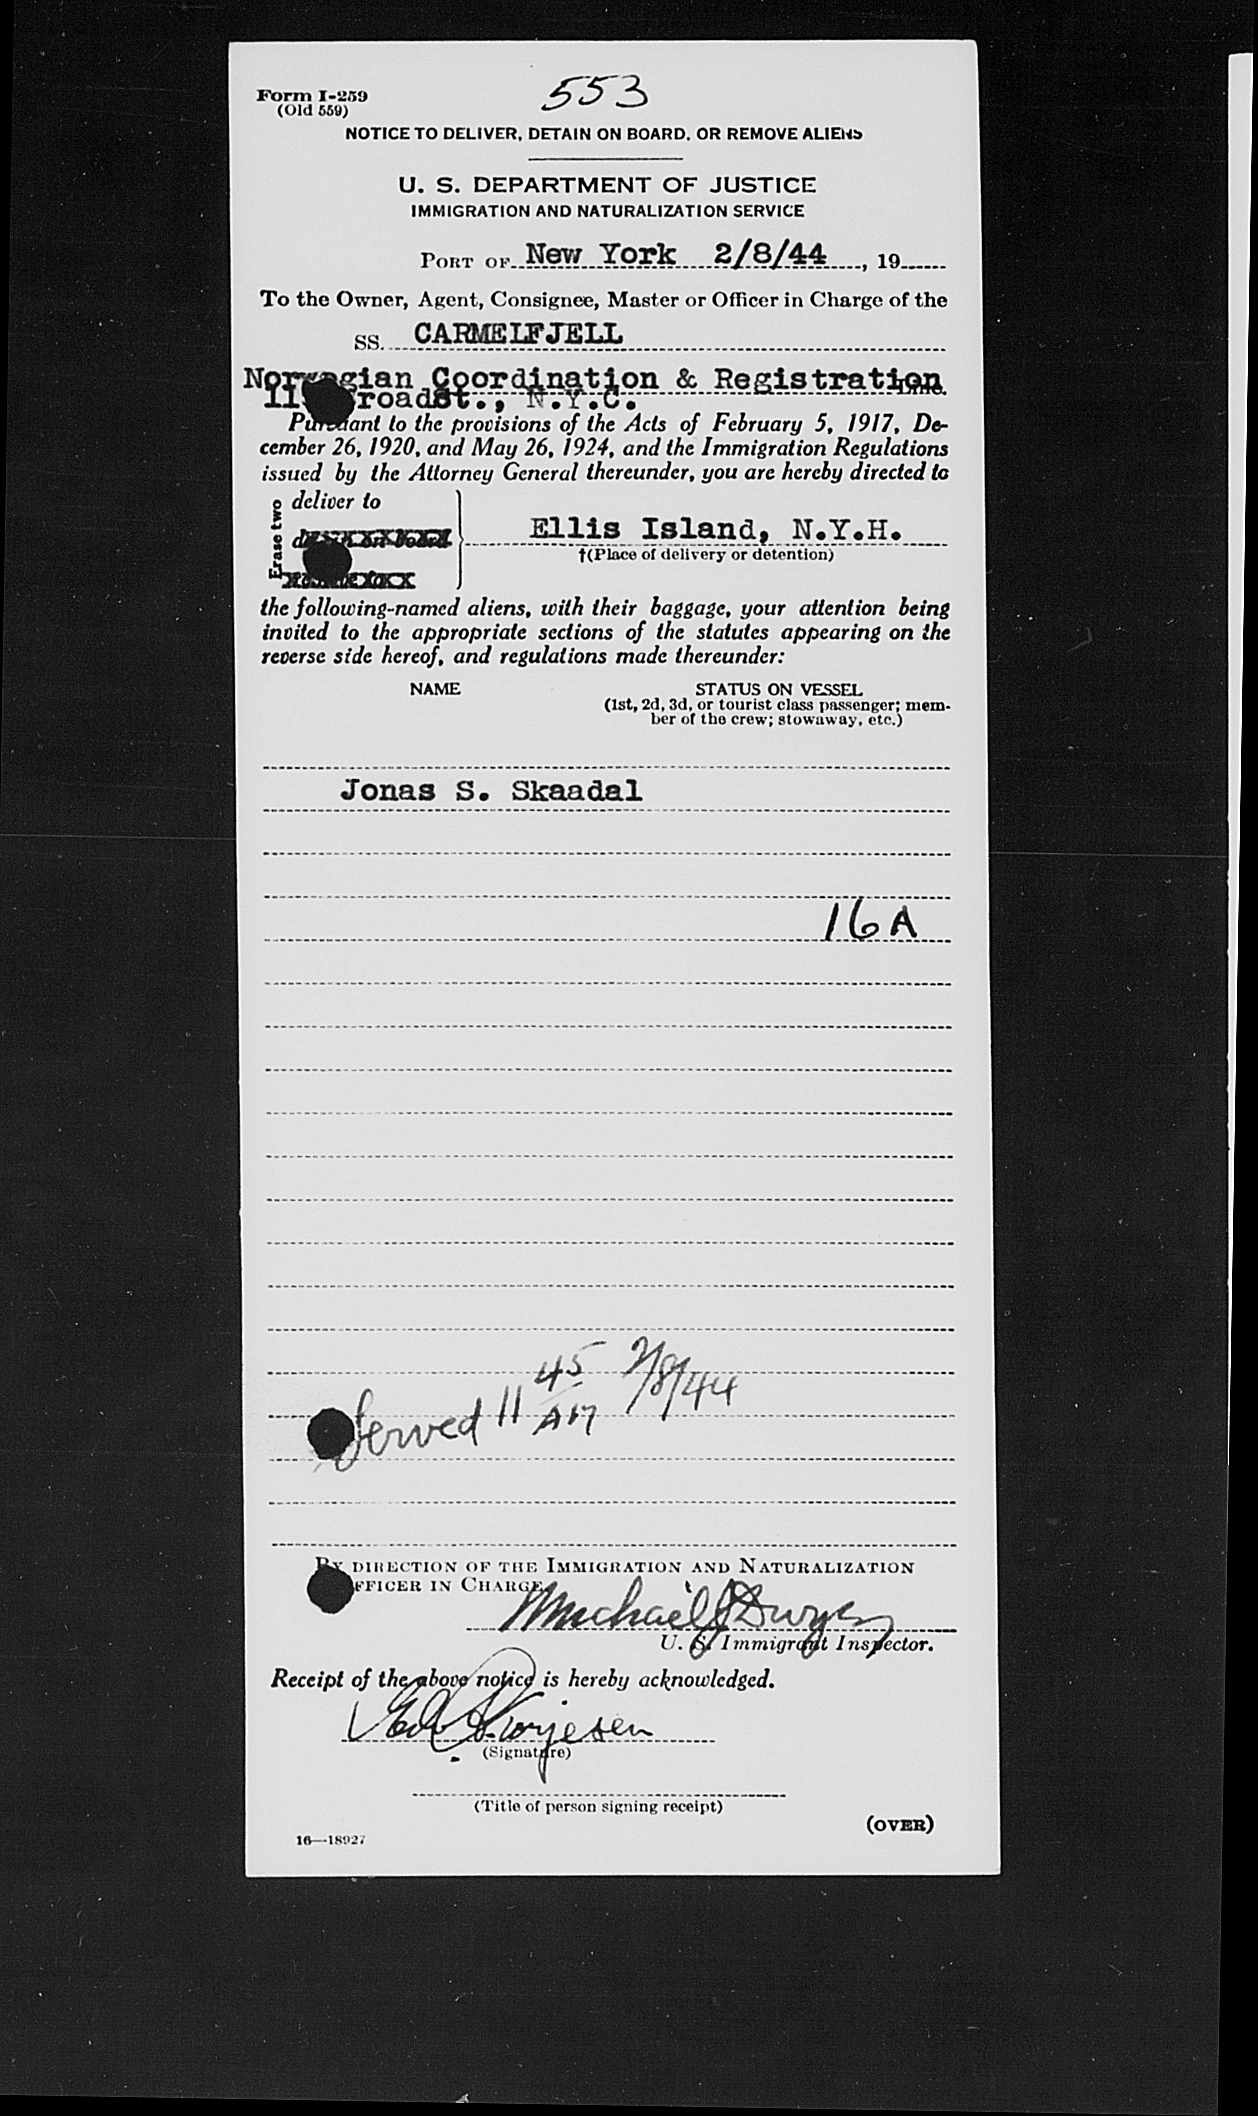 553
Form I-259
(Old 559)
NOTICE TO DELIVER, DETAIN ON BOARD, OR REMOVE ALIENS
U. S. DEPARTMENT OF JUSTICE
IMMIGRATION AND NATURALIZATION SERVICE
PORT OF New York 2/8/44, 19
To the Owner, Agent, Consignee, Master or Officer in Charge of the
SS. CARMELFJELL
Norwegian Coordination & Registration Line.
Broadst., N.Y.C.
Pursuant to the provisions of the Acts of February 5, 1917, De-
cember 26, 1920, and May 26, 1924, and the Immigration Regulations
issued by the Attorney General thereunder, you are hereby directed to
Erase two
deliver to
detain on board
Ellis Island, N.Y.H.
†(Place of delivery or detention)
the following-named aliens, with their baggage, your attention being
invited to the appropriate sections of the statutes appearing on the
reverse side hereof, and regulations made thereunder:
NAME STATUS ON VESSEL
(1st, 2d, 3d, or tourist class passenger; mem-
ber of the crew; stowaway, etc.)
Jonas S. Skaadal
16A
Served 11 45 AM 2/8/44
BY DIRECTION OF THE IMMIGRATION AND NATURALIZATION
OFFICER IN CHARGE
Michael J Dwyer
U. S. Immigrant Inspector.
Receipt of the above notice is hereby acknowledged.
(Signature)
(Title of person signing receipt)
(OVER)
16—18927